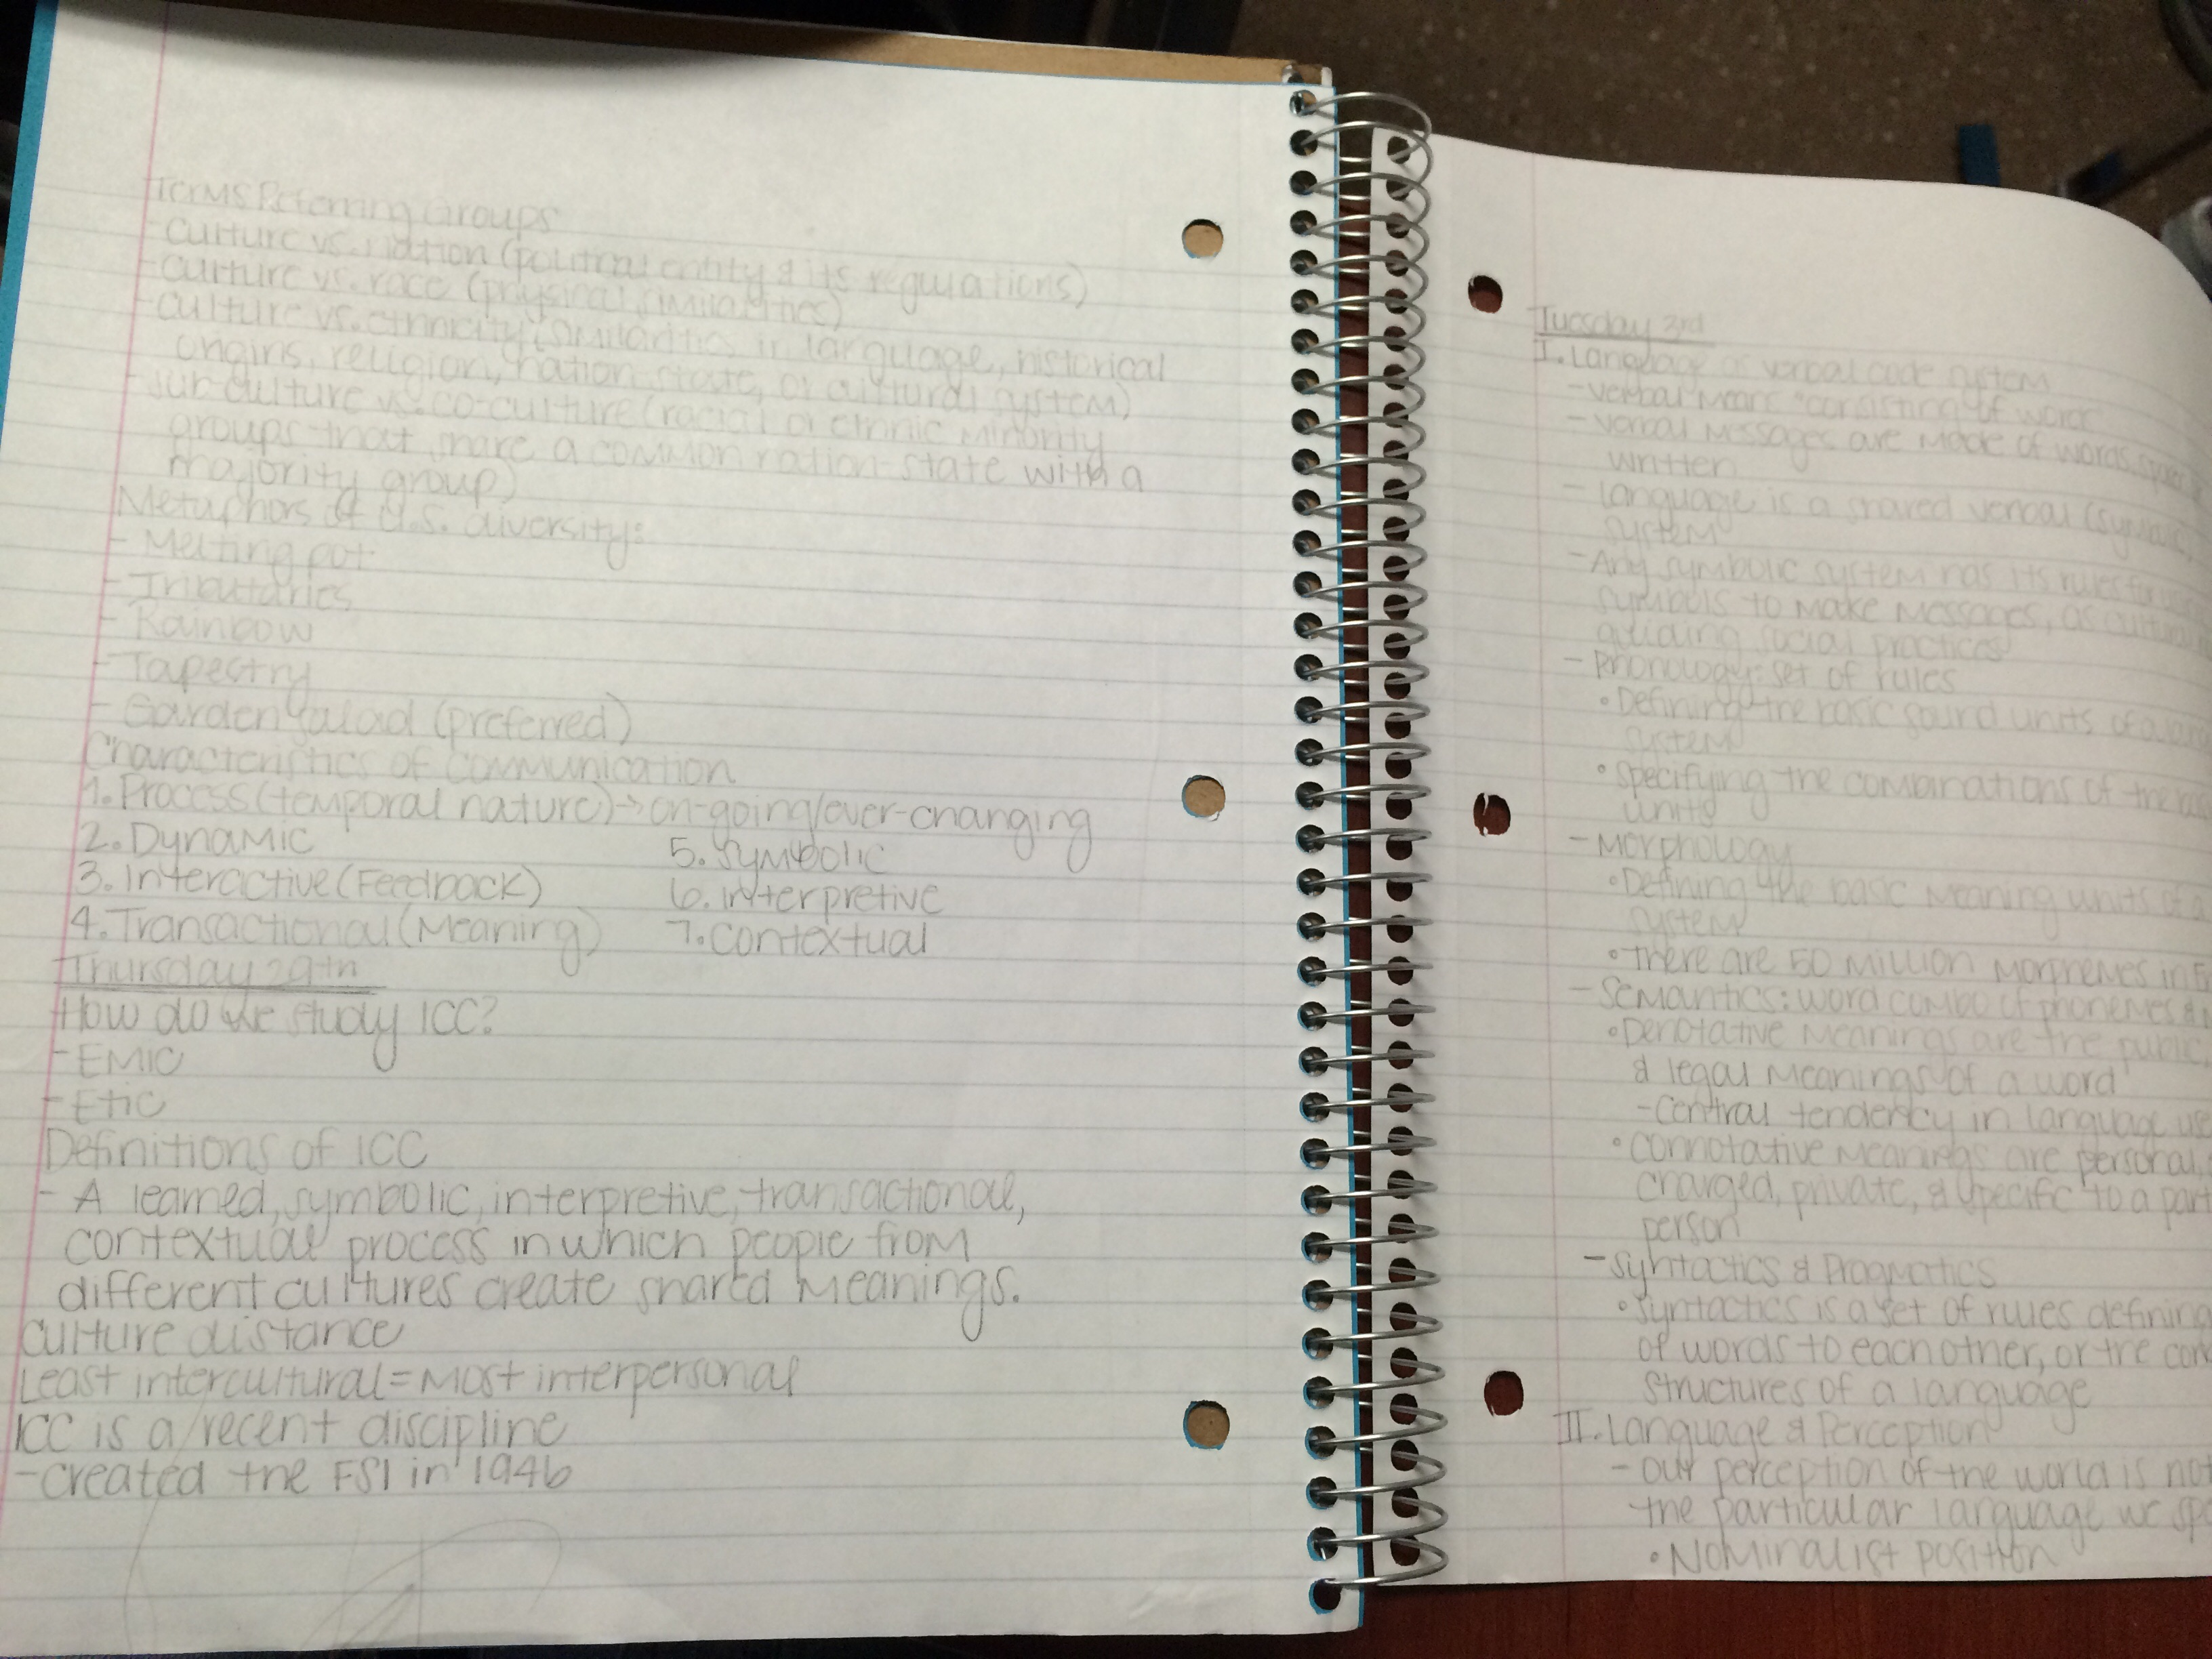 Terms Referring Groups
- Culture vs. nation (political entity & its regulations)
- Culture vs. race (physical similarities)
- Culture vs. ethnicity (similarities in language, historical
origins, religion, nation-state, or cultural system)
- sub-culture vs. co-culture (racial or ethnic minority
groups that share a common nation-state with a
majority group)
Metaphors of U.S. diversity:
- Melting pot
- Tributaries
- Rainbow
- Tapestry
- Garden salad (preferred)
Characteristics of Communication
1. Process (temporal nature) → on-going/ever-changing
2. Dynamic
3. Interactive (Feedback)
4. Transactional (Meaning)
5. Symbolic
6. interpretive
7. Contextual
Thursday 29th
How do we study ICC?
- EMIC
- Etic
Definitions of ICC
- A learned, symbolic, interpretive, transactional,
contextual process in which people from
different cultures create shared meanings.
Culture distance
Least intercultural = Most interpersonal
ICC is a recent discipline
- created the FSI in 1946
Tuesday 3rd
I. Language verbal code system
- verbal means "consisting of words
- verbal messages are made of words,
written
- language is a shared verbal
system
- Any symbolic system has its rules for
symbols to make messages, as
guiding social practices
- Phonology: set of rules
• Defining the basic sound units of a
system
• Specifying the combinations of the
units
- Morphology
• Defining the basic meaning units of
system
• There are 50 million morphemes in
- Semantics: word combo of phonemes &
• Denotative meanings are the public,
& legal meanings of a word
- Central tendency in language
• Connotative meanings are personal,
charged, private, & specific to a
person
- Syntactics & Pragmatics
• Syntactics is a set of rules defining
of words to each other, or the
structures of a language
II. Language & Perception
- our perception of the world is not
the particular language we
• Nominalist position